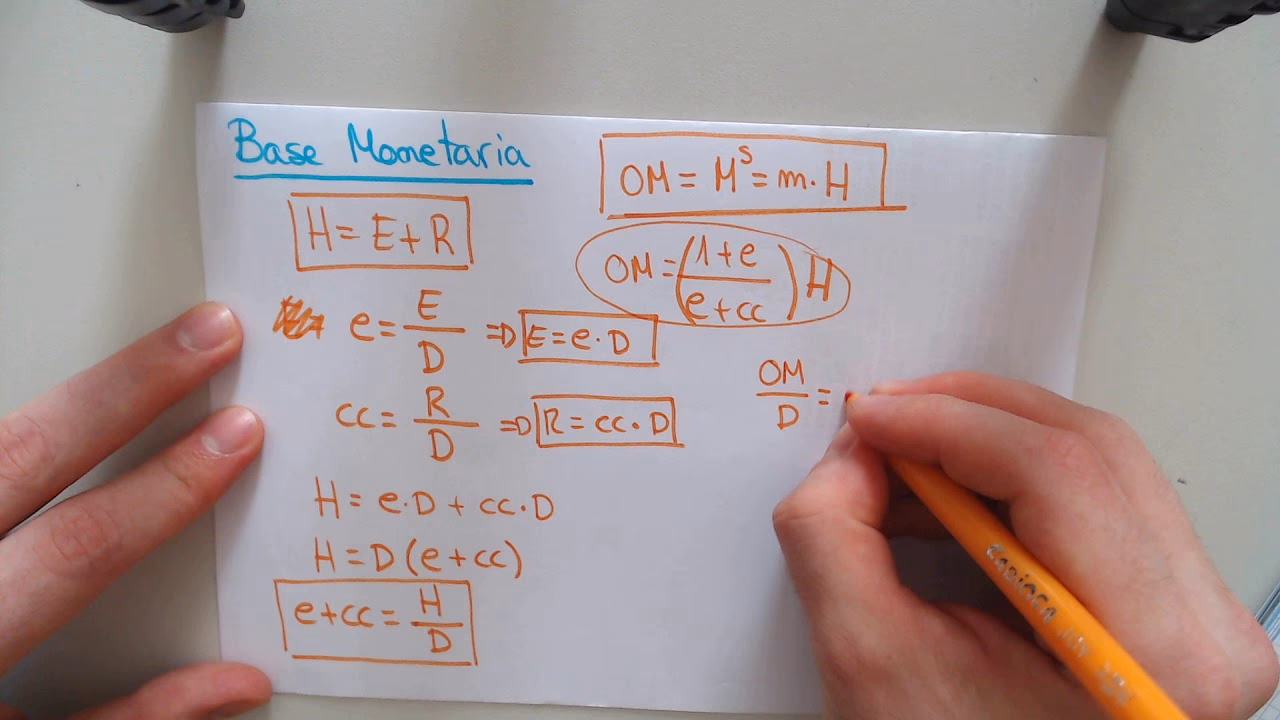 Base Monetaria
H = E + R
e = E/D ⇒ E = e · D
cc = R/D ⇒ R = cc · D
H = e · D + cc · D
H = D (e + cc)
e + cc = H/D
OM = M^S = m · H
OM = (1 + e / e + cc) H
OM/D =
CARIOCA